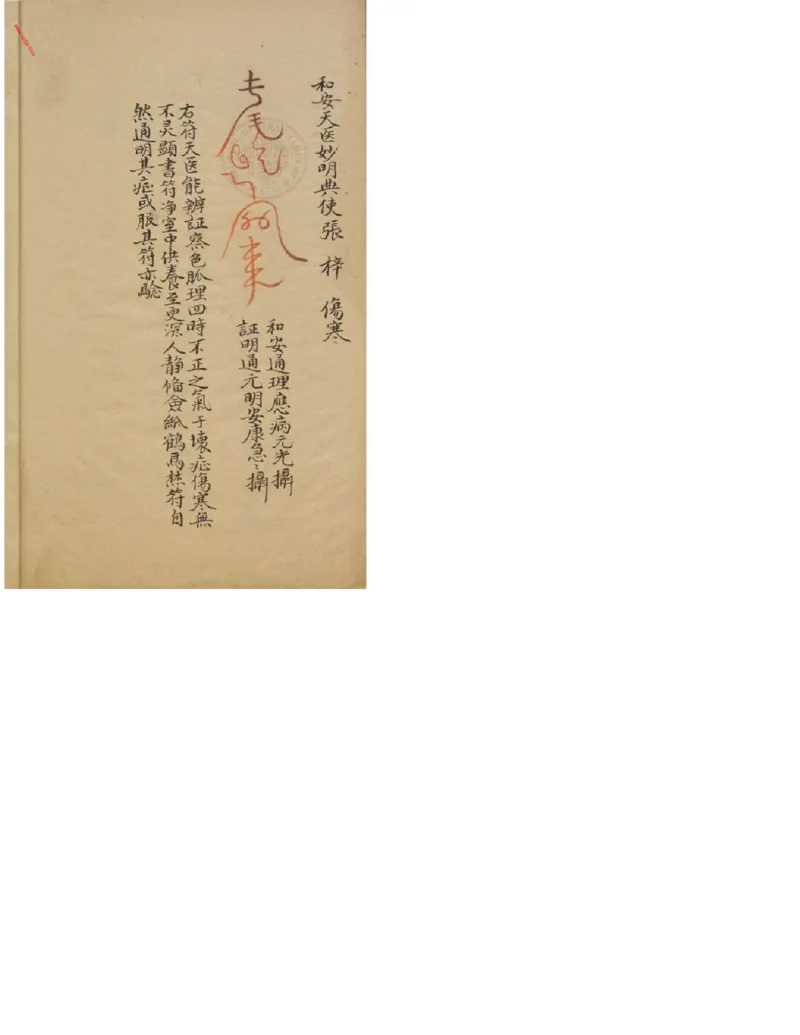 和安天医妙明典使張 梓 傷寒
和安通理應病元光攝
証明通元明安康急〻攝
右符天医能辨証察色脈理四時不正之氣于壞症傷寒無
不灵顯書符净室中供養至更深人静俻僉紙鶴馬焚符自
然通明其症或服其符亦驗